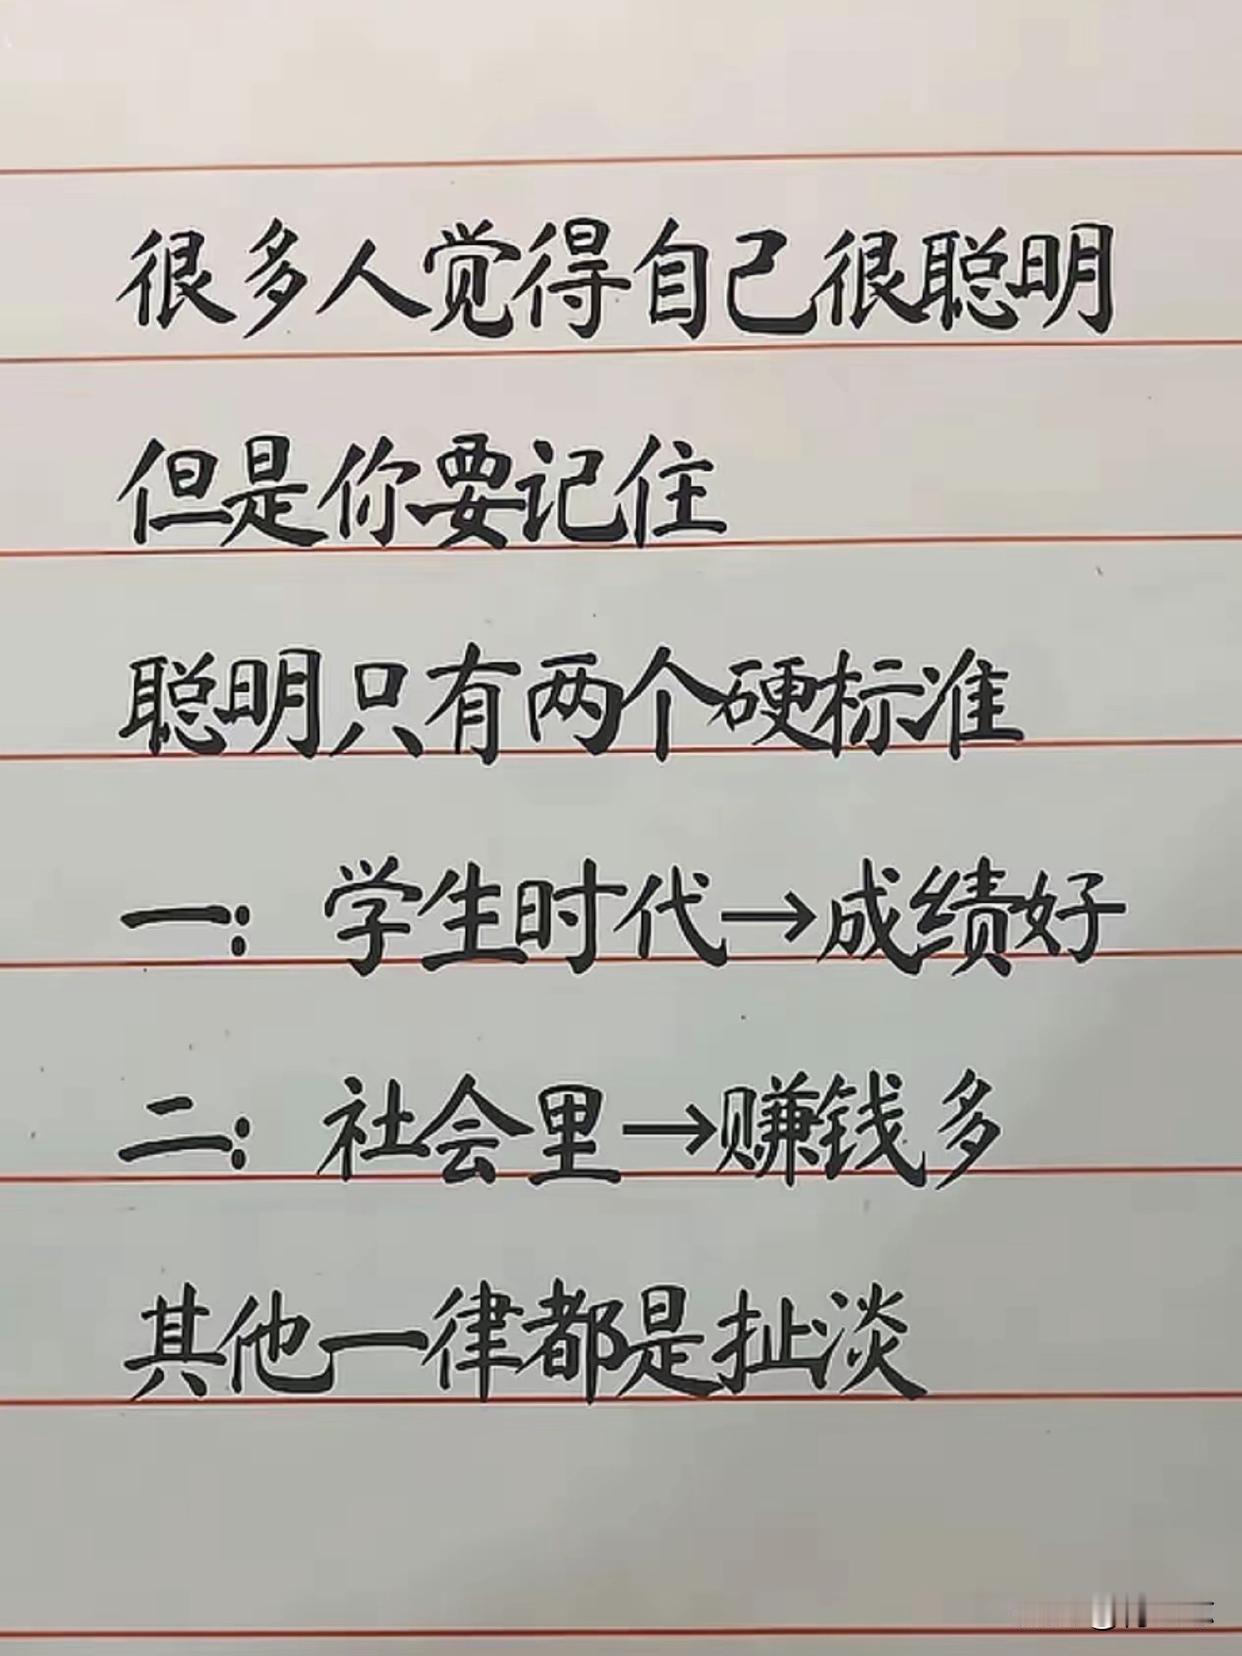 很多人觉得自己很聪明
但是你要记住
聪明只有两个硬标准
一：学生时代→成绩好
二：社会里→赚钱多
其他一律都是扯淡